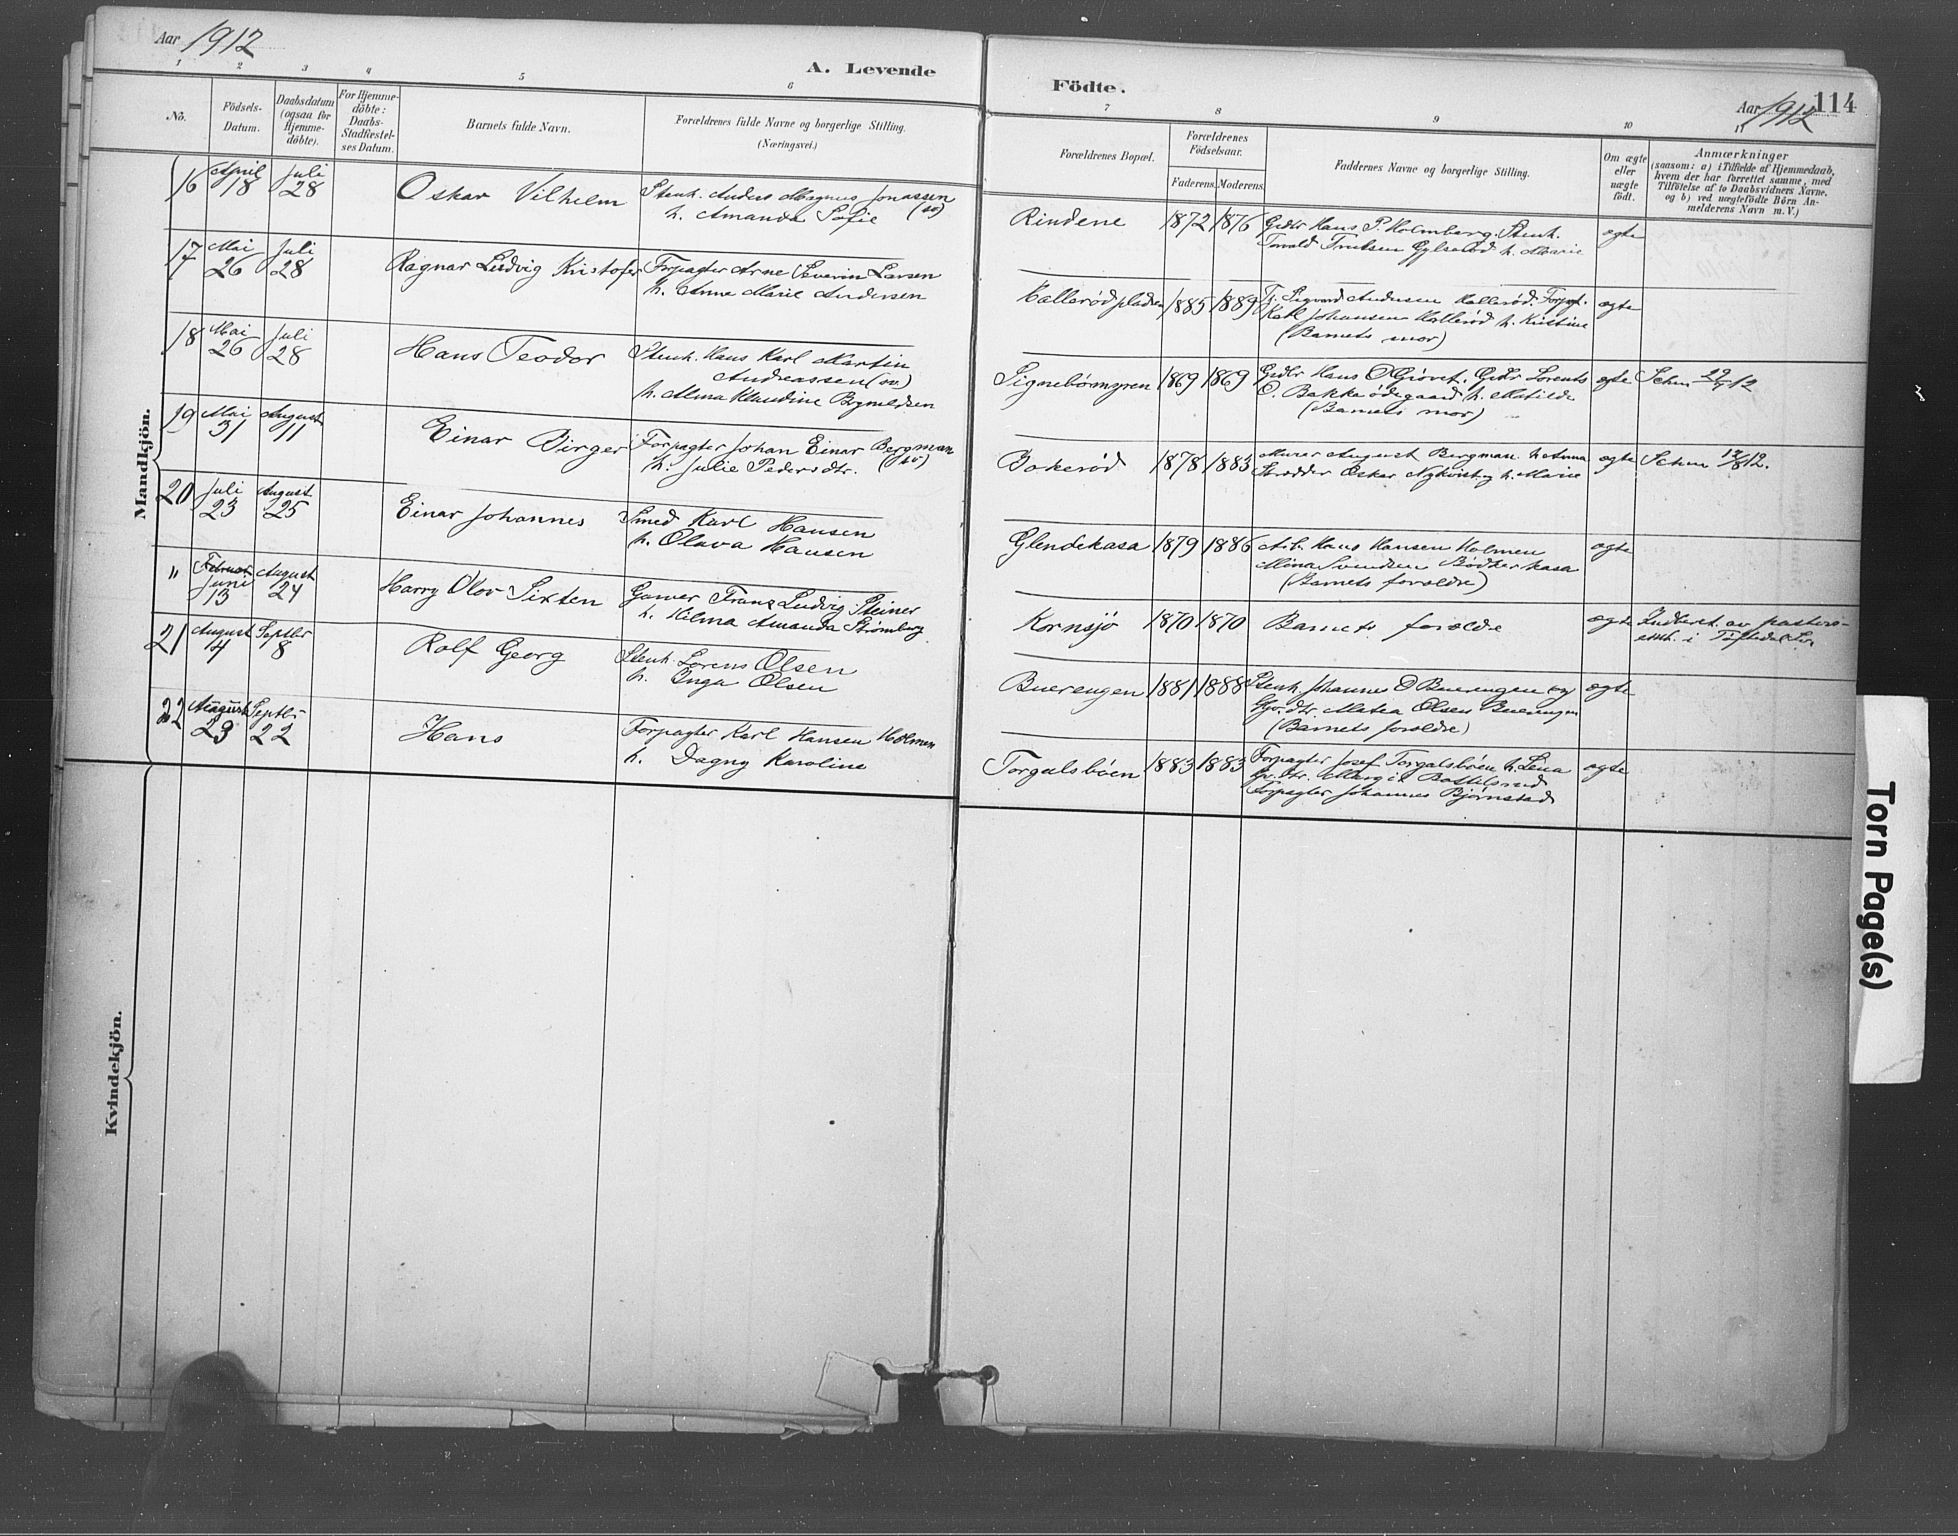 Aar 1912
A. Levende
1 2 3 4 5 6
No.
Födsels-Datum.
Daabsdatum (ogsaa for Hjemme-döbte).
For Hjemme-döbte: Daabs-Stadfestel-ses Datum.
Barnets fulde Navn.
Forældrenes fulde Navne og borgerlige Stilling.
(Næringsvei.)
Mandkjön.
16 April 18 Juli 28 Oskar Vilhelm Stenh. Anders Magnus Jonassen
h. Amanda Sofie (sv)
17 Mai 26 Juli 28 Ragnar Ludvig Kristofer Forpagter Arne Severin Larsen
h. Anne Marie Andersen
18 Mai 26 Juli 28 Hans Teodor Stenh. Hans Karl Martin
Andreassen (sv)
h. Alma Klaudine
19 Mai 31 August 11 Einar Birger Forpagter Johan Einar Bergman
h. Julie Pedersdtr. (sv)
20 Juli 23 August 25 Einar Johannes Smed Karl Hansen
h. Olava Hansen
" Februar Juni 13 August 24 Harry Olov Sixten Frans Ludvig Steiner
h. Hilma Amanda Strömberg
21 August 4 Septbr 8 Rolf Georg Stenh. Lorens Olsen
h. Inga Olsen
22 August 23 Septbr 22 Hans Forpagter Karl Hansen Holmen
h. Dagny Karoline
Kvindekjön.
Födte.
Aar 1912 114
7 8 9 10 11
Forældrenes Bopæl.
Forældrenes Födselsaar.
Faderens. Moderens.
Faddernes Navne og borgerlige Stilling.
Om ægte eller uægte födt.
Anmærkninger
(saasom: a) i Tilfælde af Hjemmedaab,
hvem der har forrettet samme, med
Tilföielse af to Daabsvidners Navne.
og b) ved uægtefödte Börn An-
melderens Navn m. V.)
Rindene 1872 1876 Grdbr Hans P. Holmberg. Stenh.
h. Marie ægte
Kallerødpladsen 1885 1889 Sigvard Andersen Kallerød. Forpgt.
Karl Johansen Kallerød h. Kristine
(Barnets mor) ægte
Signebörmyren 1869 1869 Grdbr Hans O Gjøvet. Grdbr Lorents
O. Bakke ødegaard h. Matilde
(Barnets mor) ægte
Bokerød 1878 1883 Murer August Bergman. h. Anna
Skrædder Oskar Nykvist og h. Marie ægte
Glendekasa 1879 1886 Arb. Hans Hansen Holmen
Mina Svendsen Bødkerkasa
(Barnets forældre) ægte
Kornsjø 1870 1870 Barnets forældre ægte Indberet. av pastors-
emb. i Töftedal
Buerengen 1881 1888 Stenh. Johannes O Buerengen og
Matea Olsen Buerengen
(Barnets forældre) ægte
Torgalsböen 1883 1883 Forpagter Josef Torgalsböen h. Lena
Gr.dtr. Margit
Forpagter Johannes Bjørnstad ægte
Torn Page(s)